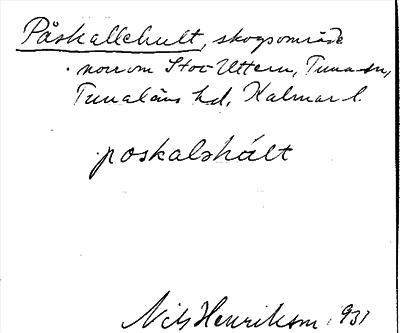 Påskallehult, skogsområde
norr om Stor Uttern, Tuna sn,
Tunaläns hd, Kalmar l.
poskalshált
Nils Henriksson 1931